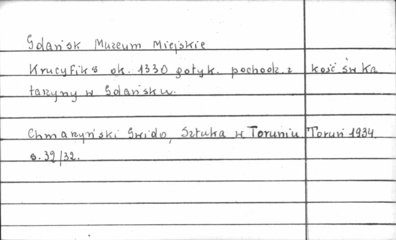 Gdańsk Muzeum Miejskie
Krucyfiks ok. 1330 gotyk. pochodz. z kość św Ka
tarzyny w Gdańsku.
Chmarzyński Gwido, Sztuka w Toruniu Toruń 1934
s. 39/32.